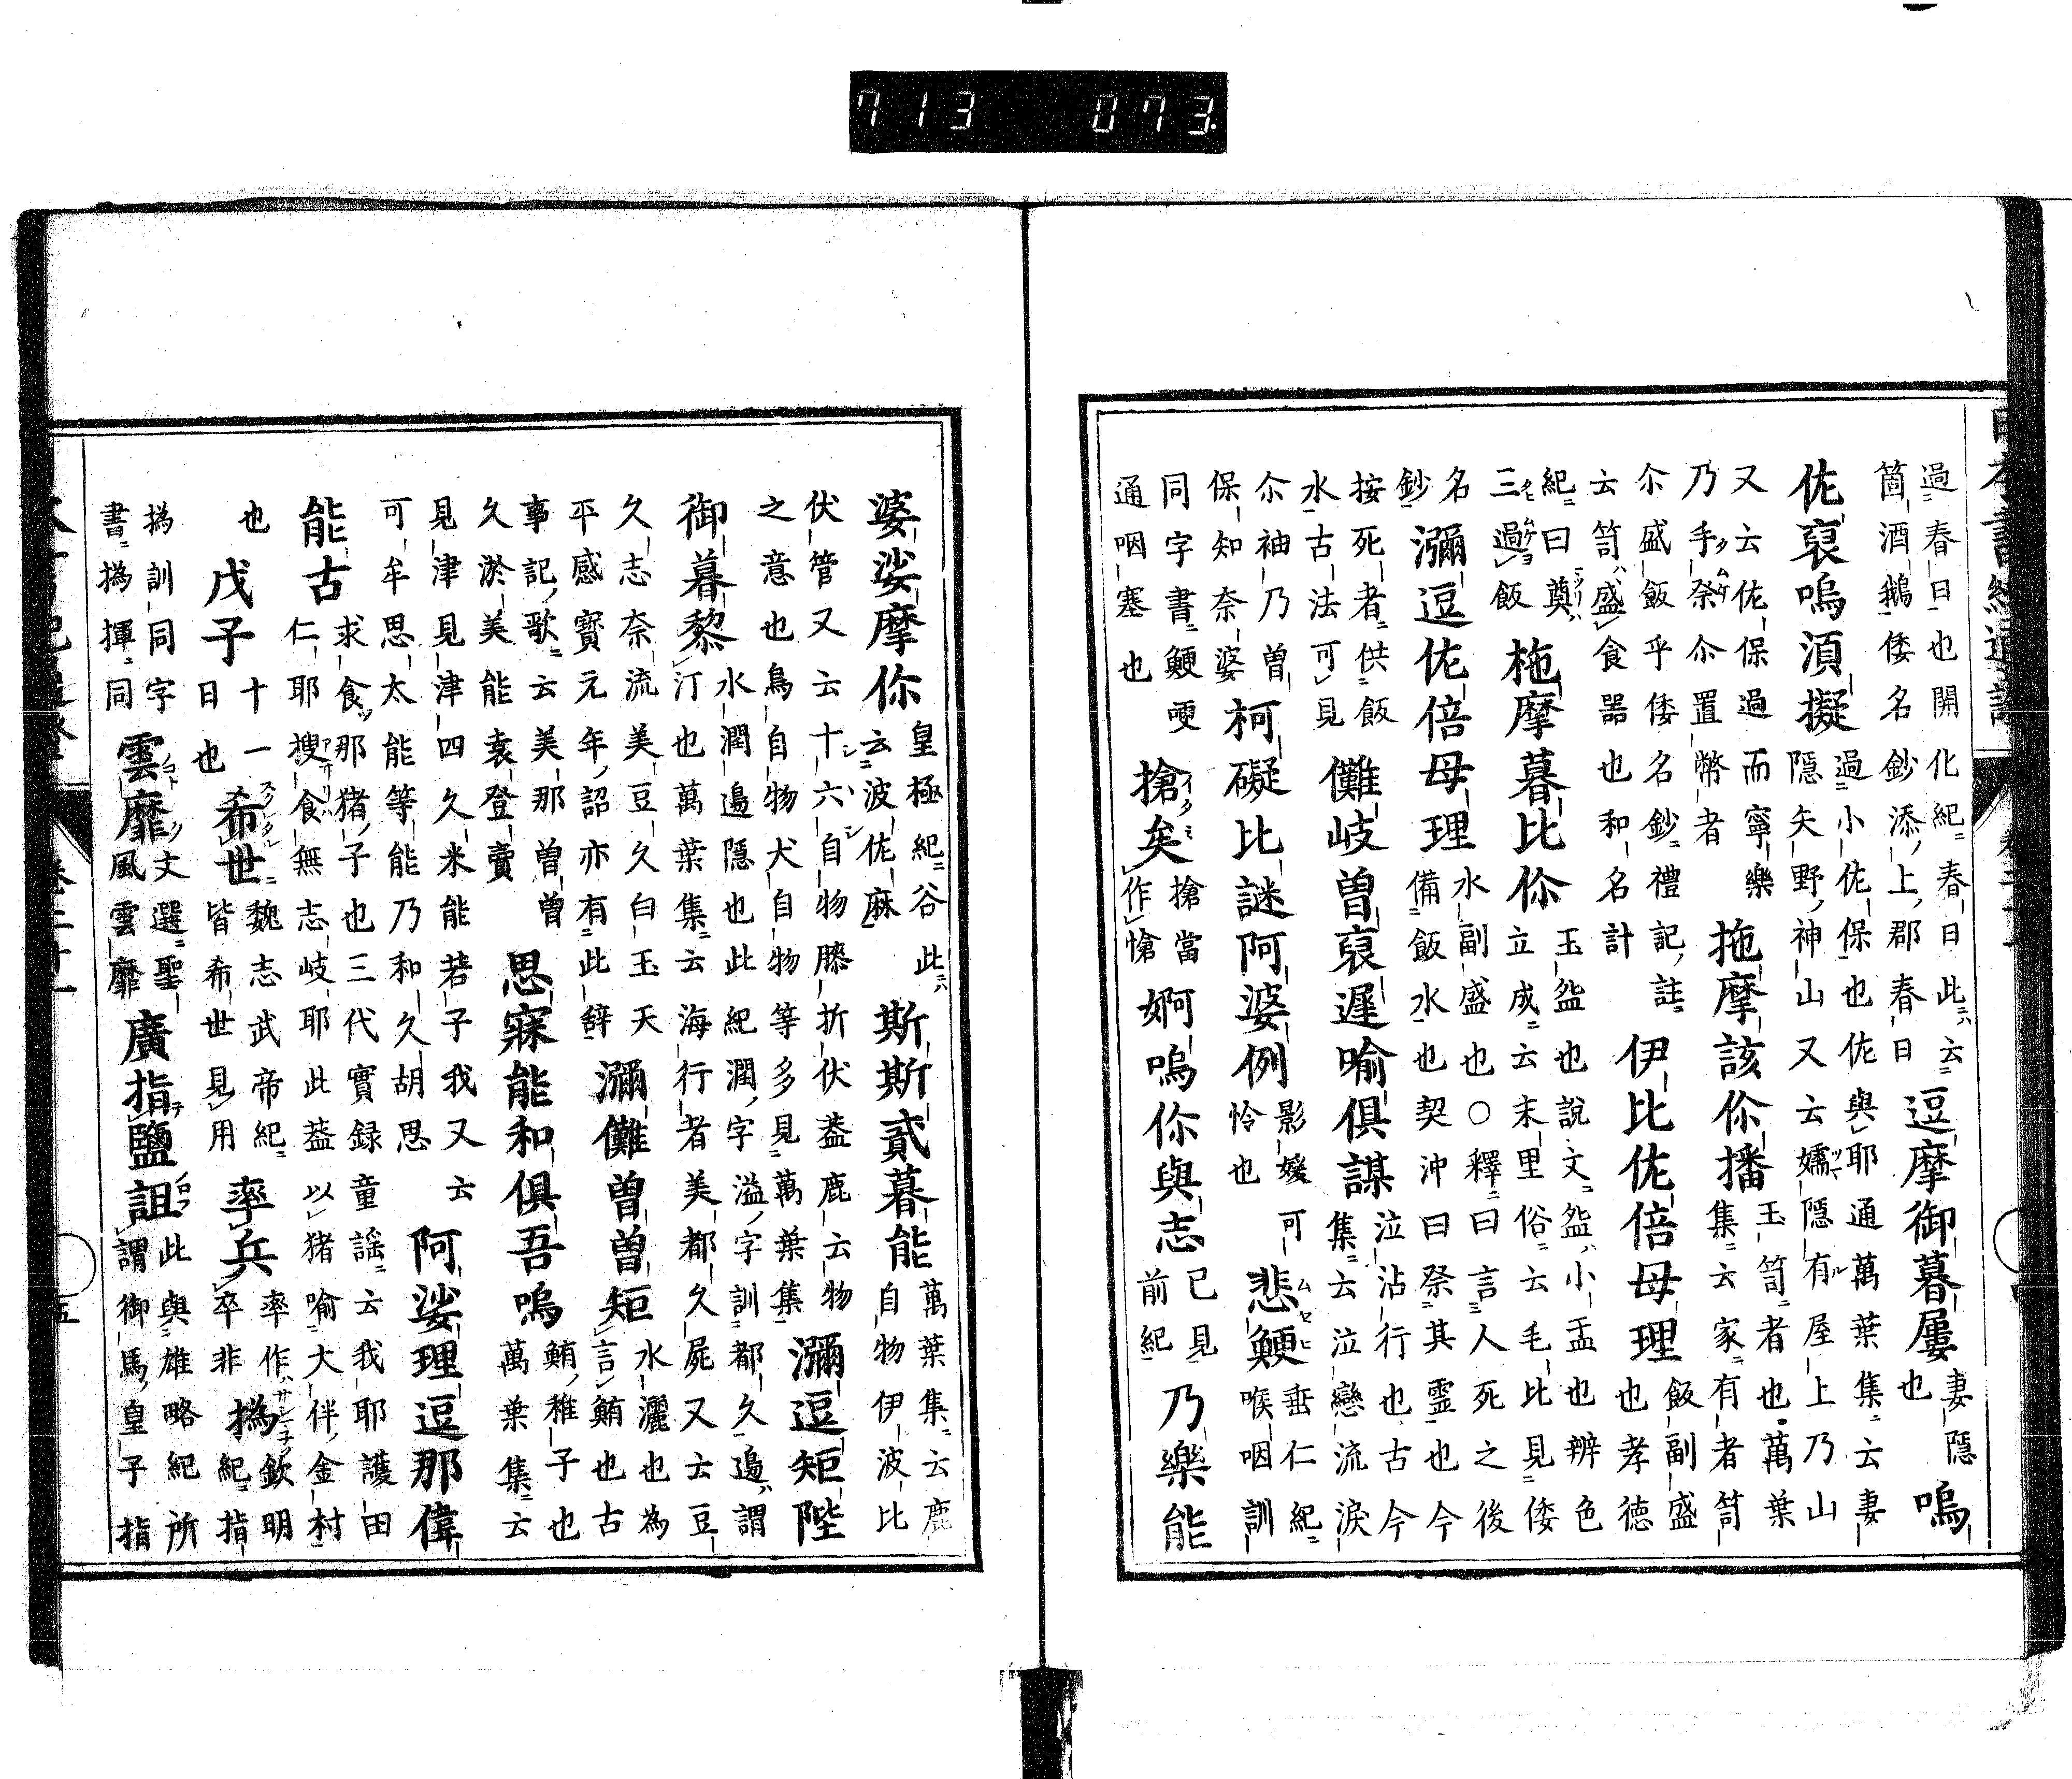 過春日也開化紀春日此云
箇酒鵝倭名鈔添上郡春日
逗摩御暮屢
妻隠
也
嗚
佐裒嗚須擬
過小佐保也佐與耶通萬葉集云妻
隠矢野神山又云嬬隠有屋上乃山
又云佐保過而寧樂
乃手祭尒置幣者
拖摩該你播
玉笥者也萬葉
集云家有者笥
尒盛飯乎倭名鈔禮記註
云笥盛食器也和名計
伊比佐倍母理
飯副盛
也孝徳
紀曰奠
三過飯
拖摩暮比你
玉盌也說文盌小盂也辨色
立成云末里俗云毛比見倭
名
鈔
瀰逗佐倍母理
水副盛也○釋曰言人死之後
備飯水也契沖曰祭其霊也今
按死者供飯
水古法可見
儺岐曽裒遲喻倶謀
泣沾行也古今
集云泣戀流淚
尒袖乃曽
保知奈婆
柯礙比謎阿婆例
影媛可
怜也
悲鯁
垂仁紀
喉咽訓
同字書鯁哽
通咽塞也
搶矣
搶當
作愴
婀嗚你與志
已見
前紀
乃樂能
婆娑摩你
皇極紀谷此
云波佐麻
斯斯貳暮能
萬葉集云鹿
自物伊波比
伏管又云十六自物膝折伏葢鹿云物
之意也鳥自物犬自物等多見萬葉集
瀰逗矩陛
御暮黎
水潤邉隠也此紀潤字溢字訓都久邉謂
汀也萬葉集云海行者美都久屍又云豆
久志奈流美豆久白玉天
平感寳元年詔亦有此辞
瀰儺曽曽矩
水灑也為
言鮪也古
事記歌云美那曽曽
久淤美能袁登賣
思寐能和倶吾嗚
鮪稚子也
萬葉集云
見津見津四久米能若子我又云
可牟思太能等能乃和久胡思
阿娑理逗那偉
能古
求食那猪子也三代實録童謡云我耶護田
仁耶搜食無志岐耶此葢以猪喻大伴金村
也
戊子
十一
日也
希世
魏志武帝紀
皆希世見用
率兵
率作
卒非
撝
欽明
紀指
撝訓同字
書撝揮同
雲靡
文選聖
風雲靡
廣指鹽詛
此與雄略紀所
謂御馬皇子指
713 073